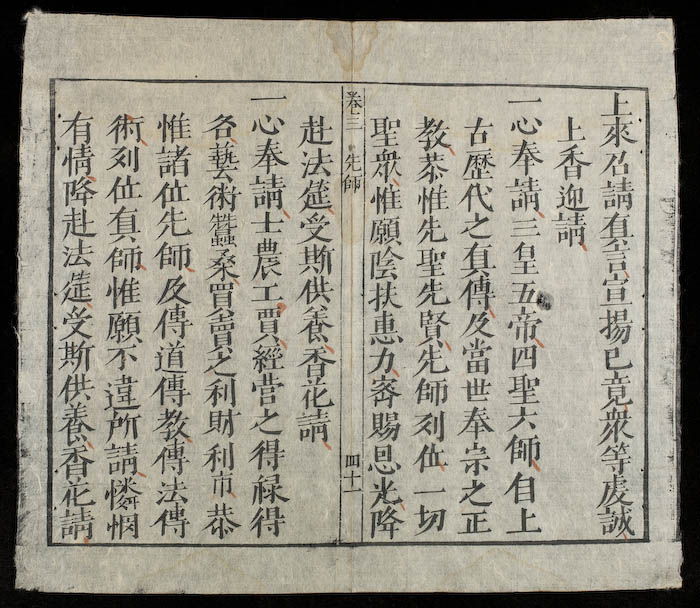 上來召請真言宣揚已竟衆等虔誠
上香迎請
一心奉請三皇五帝四聖六師自上
古歷代之真傳及當世奉宗之正
教恭惟先聖先賢先師列位一切
聖衆惟願陰扶惠力密賜恩光降
卷三 先師 四十一
赴法筵受斯供養香花請
一心奉請士農工賈經営之得禄得
各藝術蠶桑買賣之利財利市恭
惟諸位先師及傳道傳教傳法傳
術列位真師惟願不違所請憐憫
有情降赴法筵受斯供養香花請